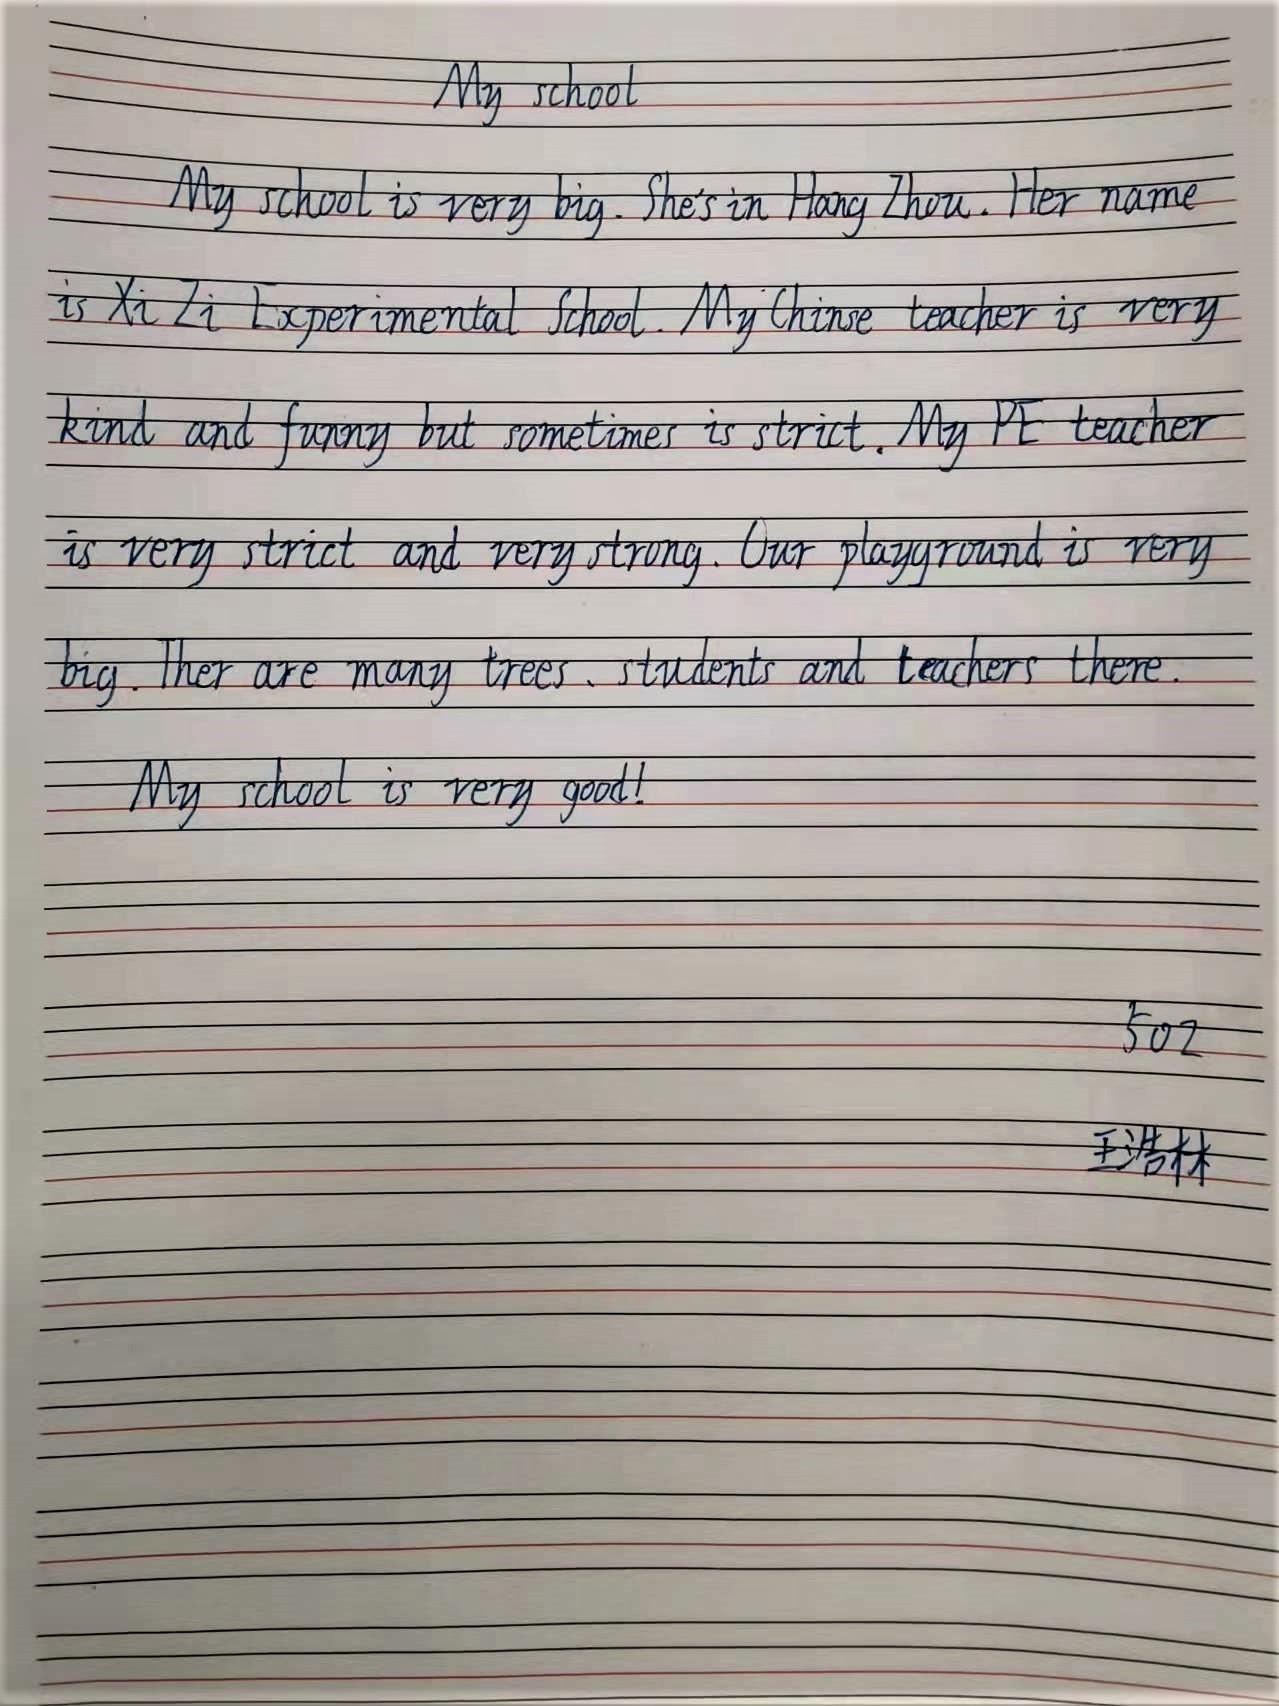 My school
My school is very big. She's in Hang Zhou. Her name
is Xi Zi Experimental School. My Chinse teacher is very
kind and funny but sometimes is strict. My PE teacher
is very strict and very strong. Our playground is very
big. Ther are many trees、students and teachers there.
My school is very good!
502
王浩林